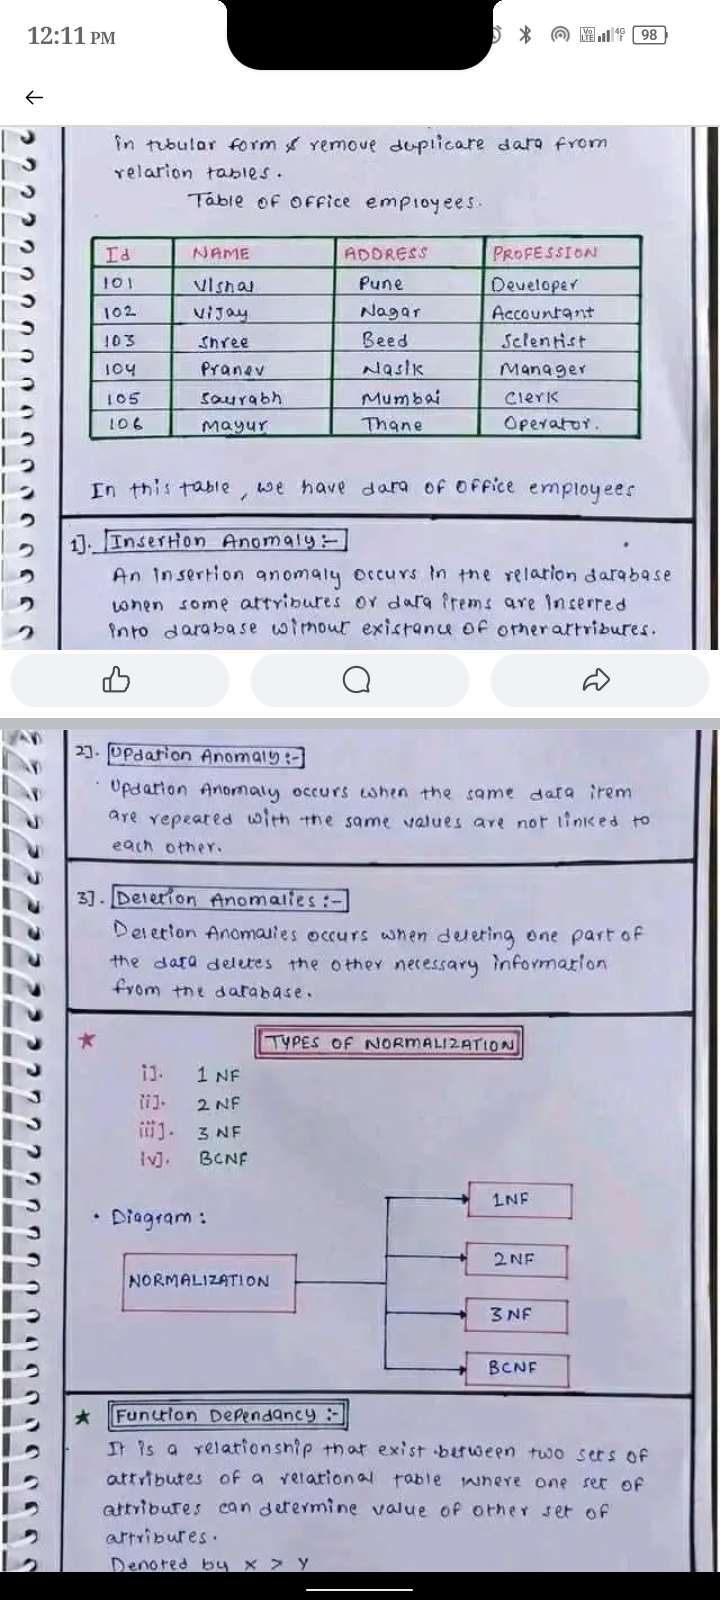 12:11 PM
Vo LTE 4G 98
in tubular form & remove duplicate data from
relation tables.
Table of office employees.
Id NAME ADDRESS PROFESSION
101 Vishal Pune Developer
102 Vijay Nagar Accountant
103 Shree Beed Scientist
104 Pranev Nasik Manager
105 Saurabh Mumbai Clerk
106 Mayur Thane Operator.
In this table, we have data of office employees
1]. Insertion Anomaly:-
An insertion anomaly occurs in the relation database
when some attributes or data items are inserted
into database without existance of other attributes.
2]. Updation Anomaly:-
Updation Anomaly occurs when the same data item
are repeated with the same values are not linked to
each other.
3]. Deletion Anomalies:-
Deletion Anomalies occurs when deleting one part of
the data deletes the other necessary information
from the database.
★ TYPES OF NORMALIZATION
i]. 1 NF
ii]. 2 NF
iii]. 3 NF
iv]. BCNF
• Diagram:
NORMALIZATION
1NF
2NF
3NF
BCNF
★ Function Dependancy:-
It is a relationship that exist between two sets of
attributes of a relational table where one set of
attributes can determine value of other set of
attributes.
Denoted by x > y